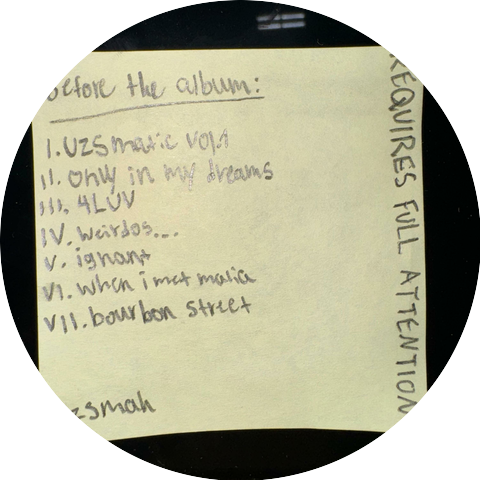 before the album:
I. UZSmatic vol.1
II. only in my dreams
III. 4LUV
IV. weirdos...
V. ignant
VI. when i met malia
VII. bourbon street
zsmah
REQUIRES FULL ATTENTION